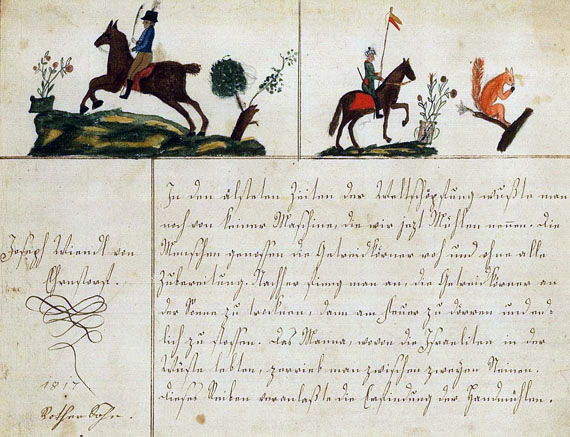 In den älsteten Zeiten der Weltschöpfung wußte man
noch von keiner Maschine, die wir jezt Mühlen nennen. Die
Menschen genossen die Getreidkörner roh und ohne alle
Zubereitung. Nachher fieng man an, die Getreidkörner an
der Sonne zu trocknen, dann am Feuer zu dörren und end-
lich zu stossen. Das Manna, wovon die Israeliten in der
Wüste lebten, zerrieb man zwischen zweyen Steinen.
Dieses Reiben veranlaßte die Erfindung der Handmühlen.
Joseph Wiendl von
Ernstorf.
1817
Sohn.